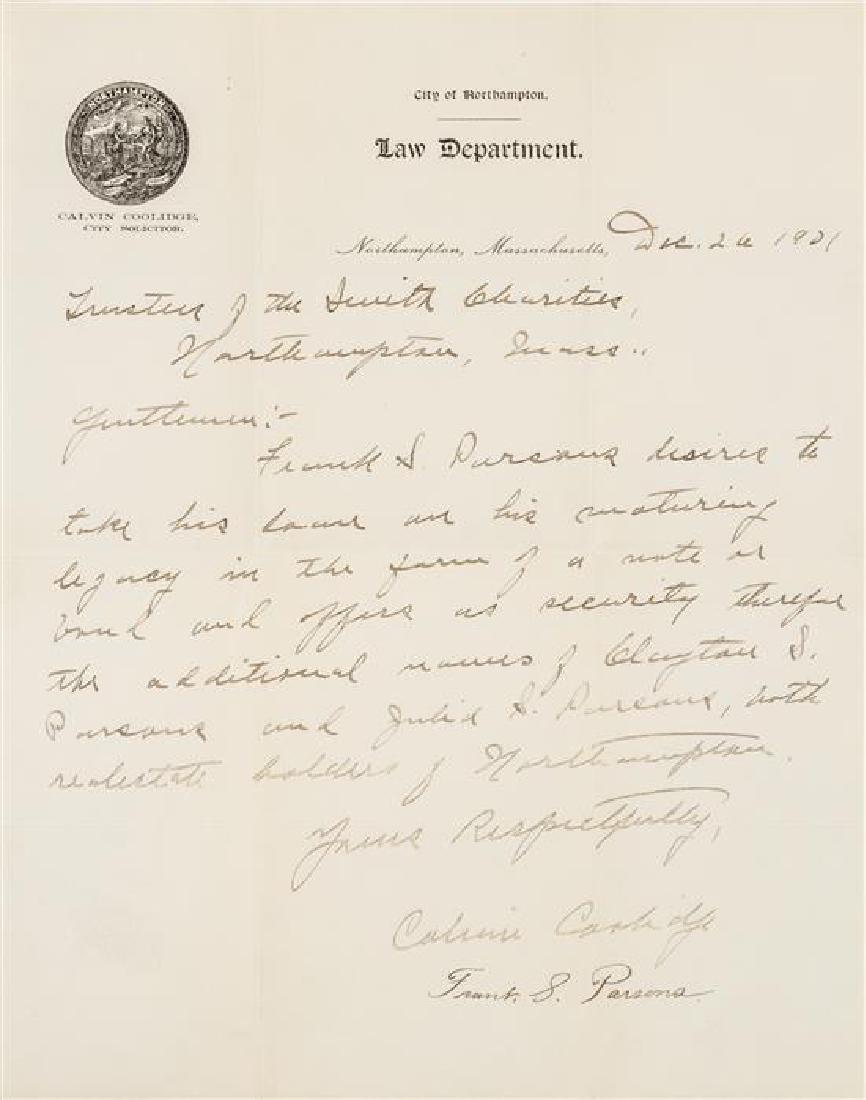 NORTHAMPTON
CALVIN COOLIDGE,
CITY SOLICITOR.
City of Northampton.
Law Department.
Northampton, Massachusetts, Dec. 26 1901
Trustees of the Smith Charities,
Northampton, Mass..
Gentlemen:-
Frank S. Parsons desires to
take his loan on his maturing
legacy in the form of a note or
bond and offers as security therefor
the additional names of Clayton S.
Parsons and Julia S. Parsons, both
realestate holders of Northampton.
Yours Respectfully,
Calvin Coolidge
Frank. S. Parsons.